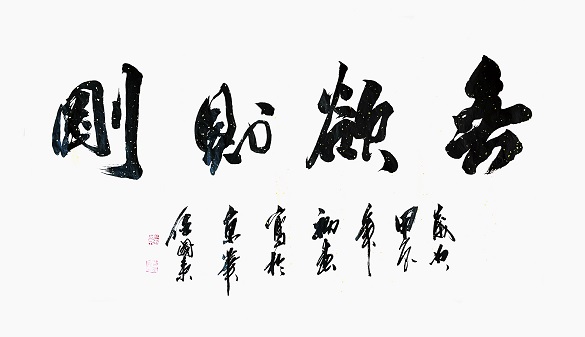 無欲則剛
歲次
甲辰
年
初春
寫於
京華
任國